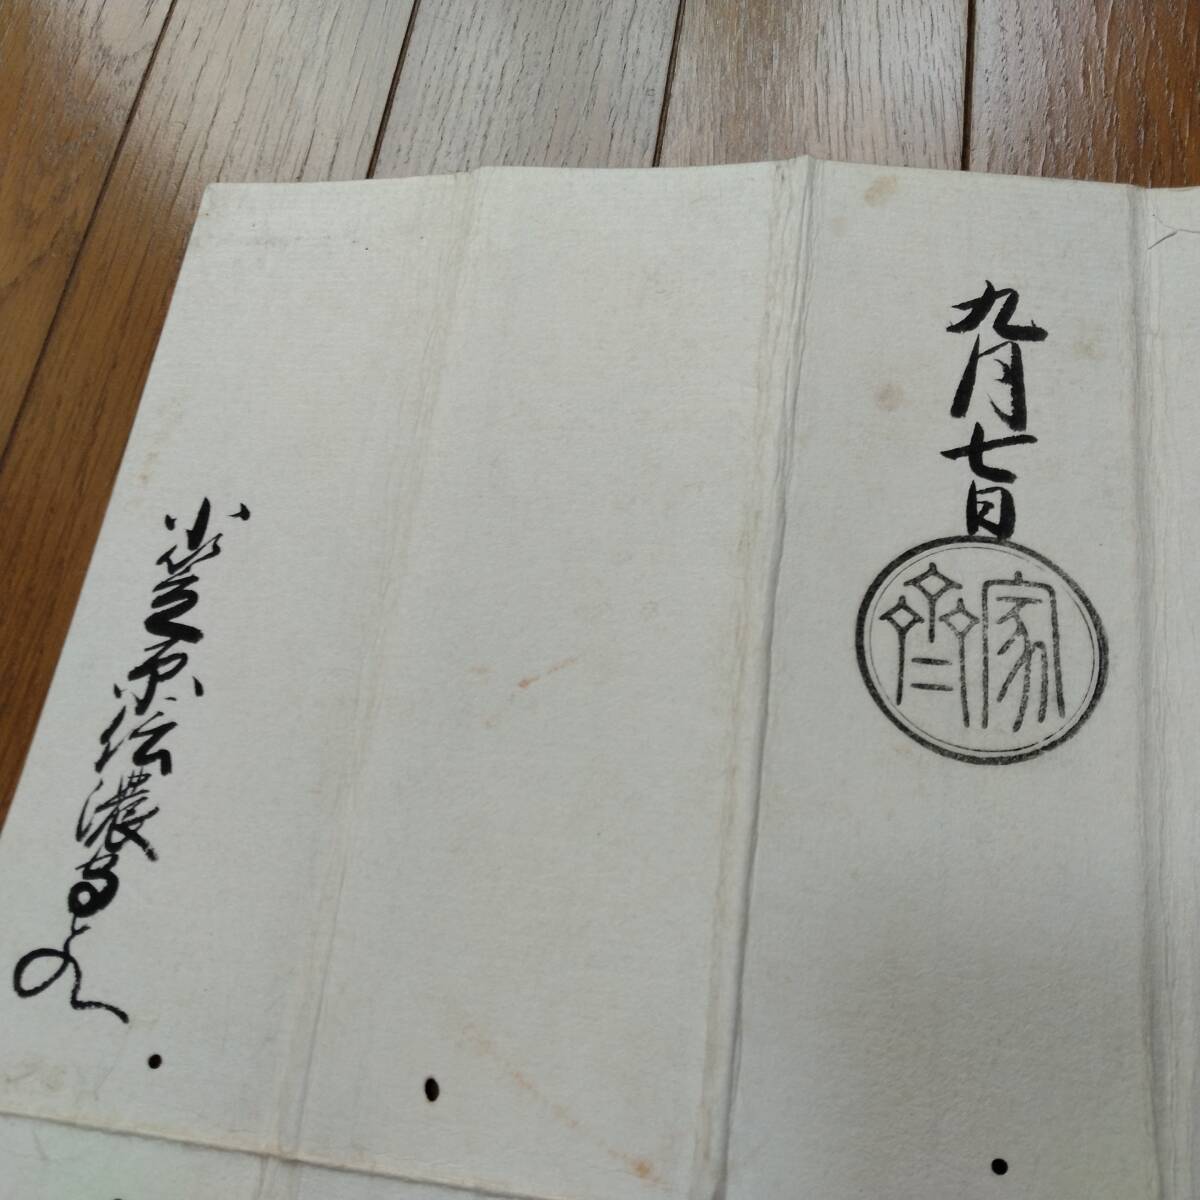 九月七日
家齊
小笠原信濃守とのへ